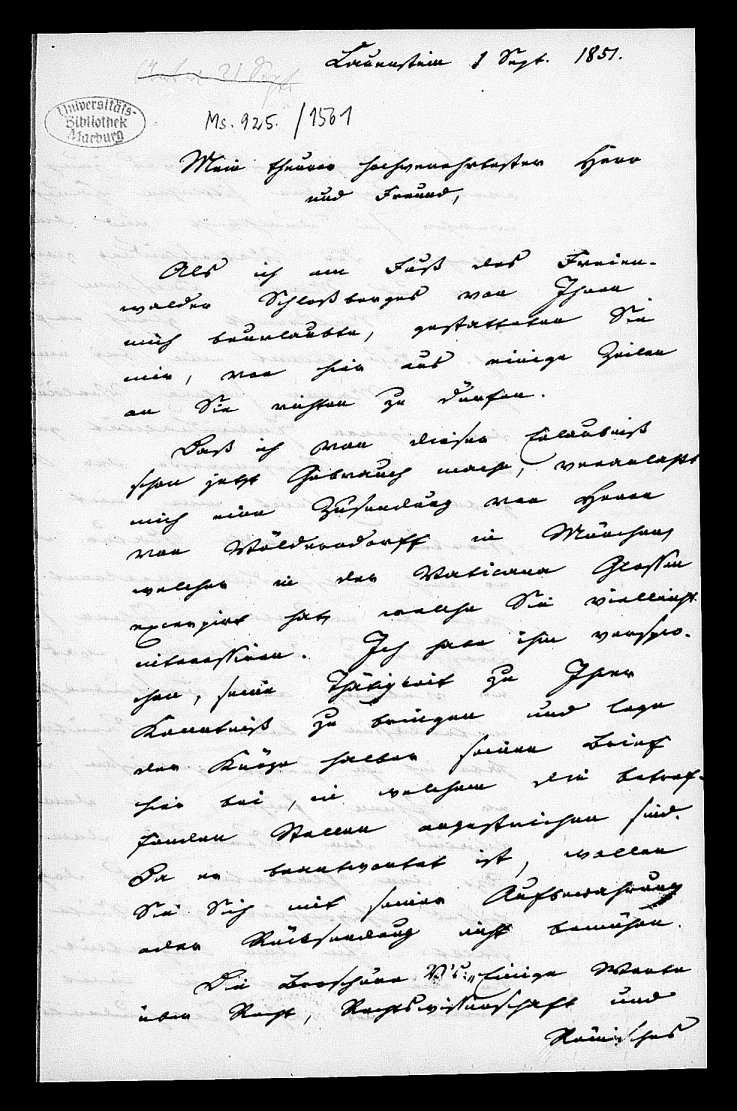 Lauenstein 8 Sept. 1851.
Universitäts-
Bibliothek
Marburg
Ms. 925. / 1561
Mein theurer hochverehrtester Herr
und Freund,
Als ich am Fuß des Freien-
walder Schloßberges von Ihnen
mich beurlaubte, gestatteten Sie
mir, von hier aus einige Zeilen
an Sie richten zu dürfen.
Daß ich von dieser Erlaubniß
schon jetzt Gebrauch mache, veranlaßt
mich eine Zusendung von Herrn
von Wölderndorff in München,
welcher in der Vaticana Glossen
excerpirt hat, welche Sie vielleicht
interessiren. Ich habe ihm verspro-
chen, seine Thätigkeit zu Ihrer
Kenntniß zu bringen und lege
der Kürze halber seinen Brief
hier bei, in welchem die betref-
fenden Stellen angestrichen sind.
Da er beantwortet ist, wollen
Sie Sich mit seiner Aufbewahrung
oder Rücksendung nicht bemühen.
Die Broschüre V's: „Einige Worte
über Recht, Rechtswissenschaft und
Römisches